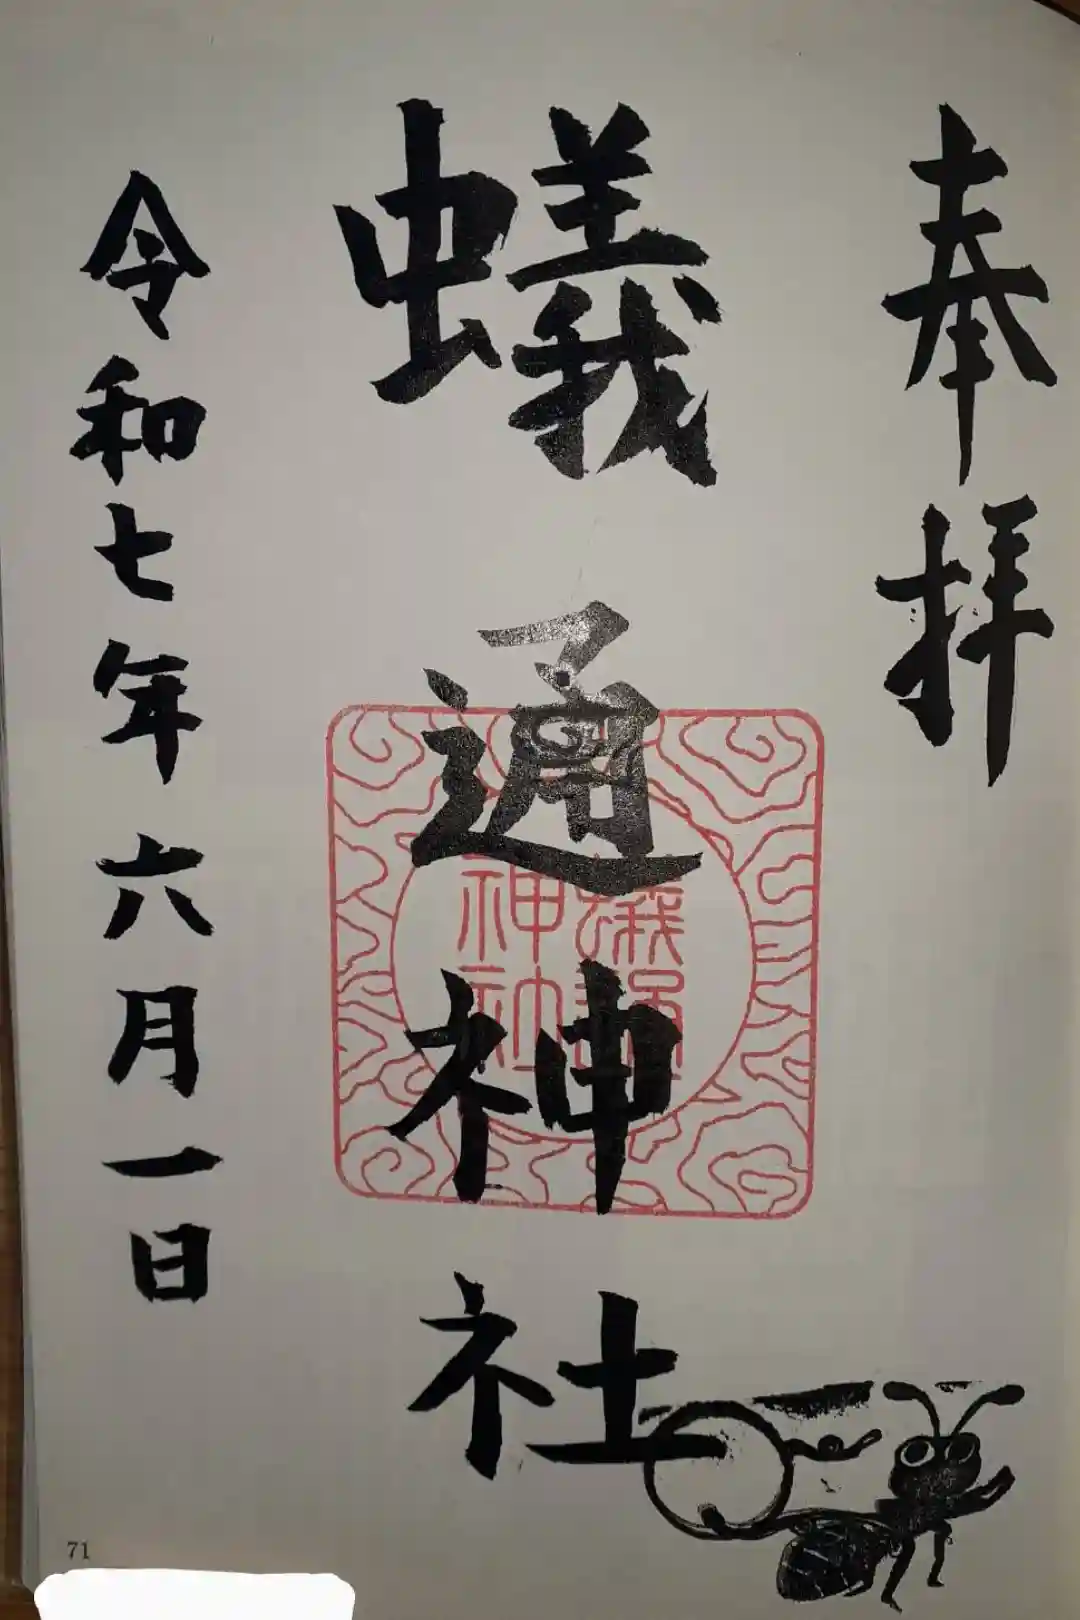 奉拝
蟻通神社
蟻通
神社
令和七年六月一日
71